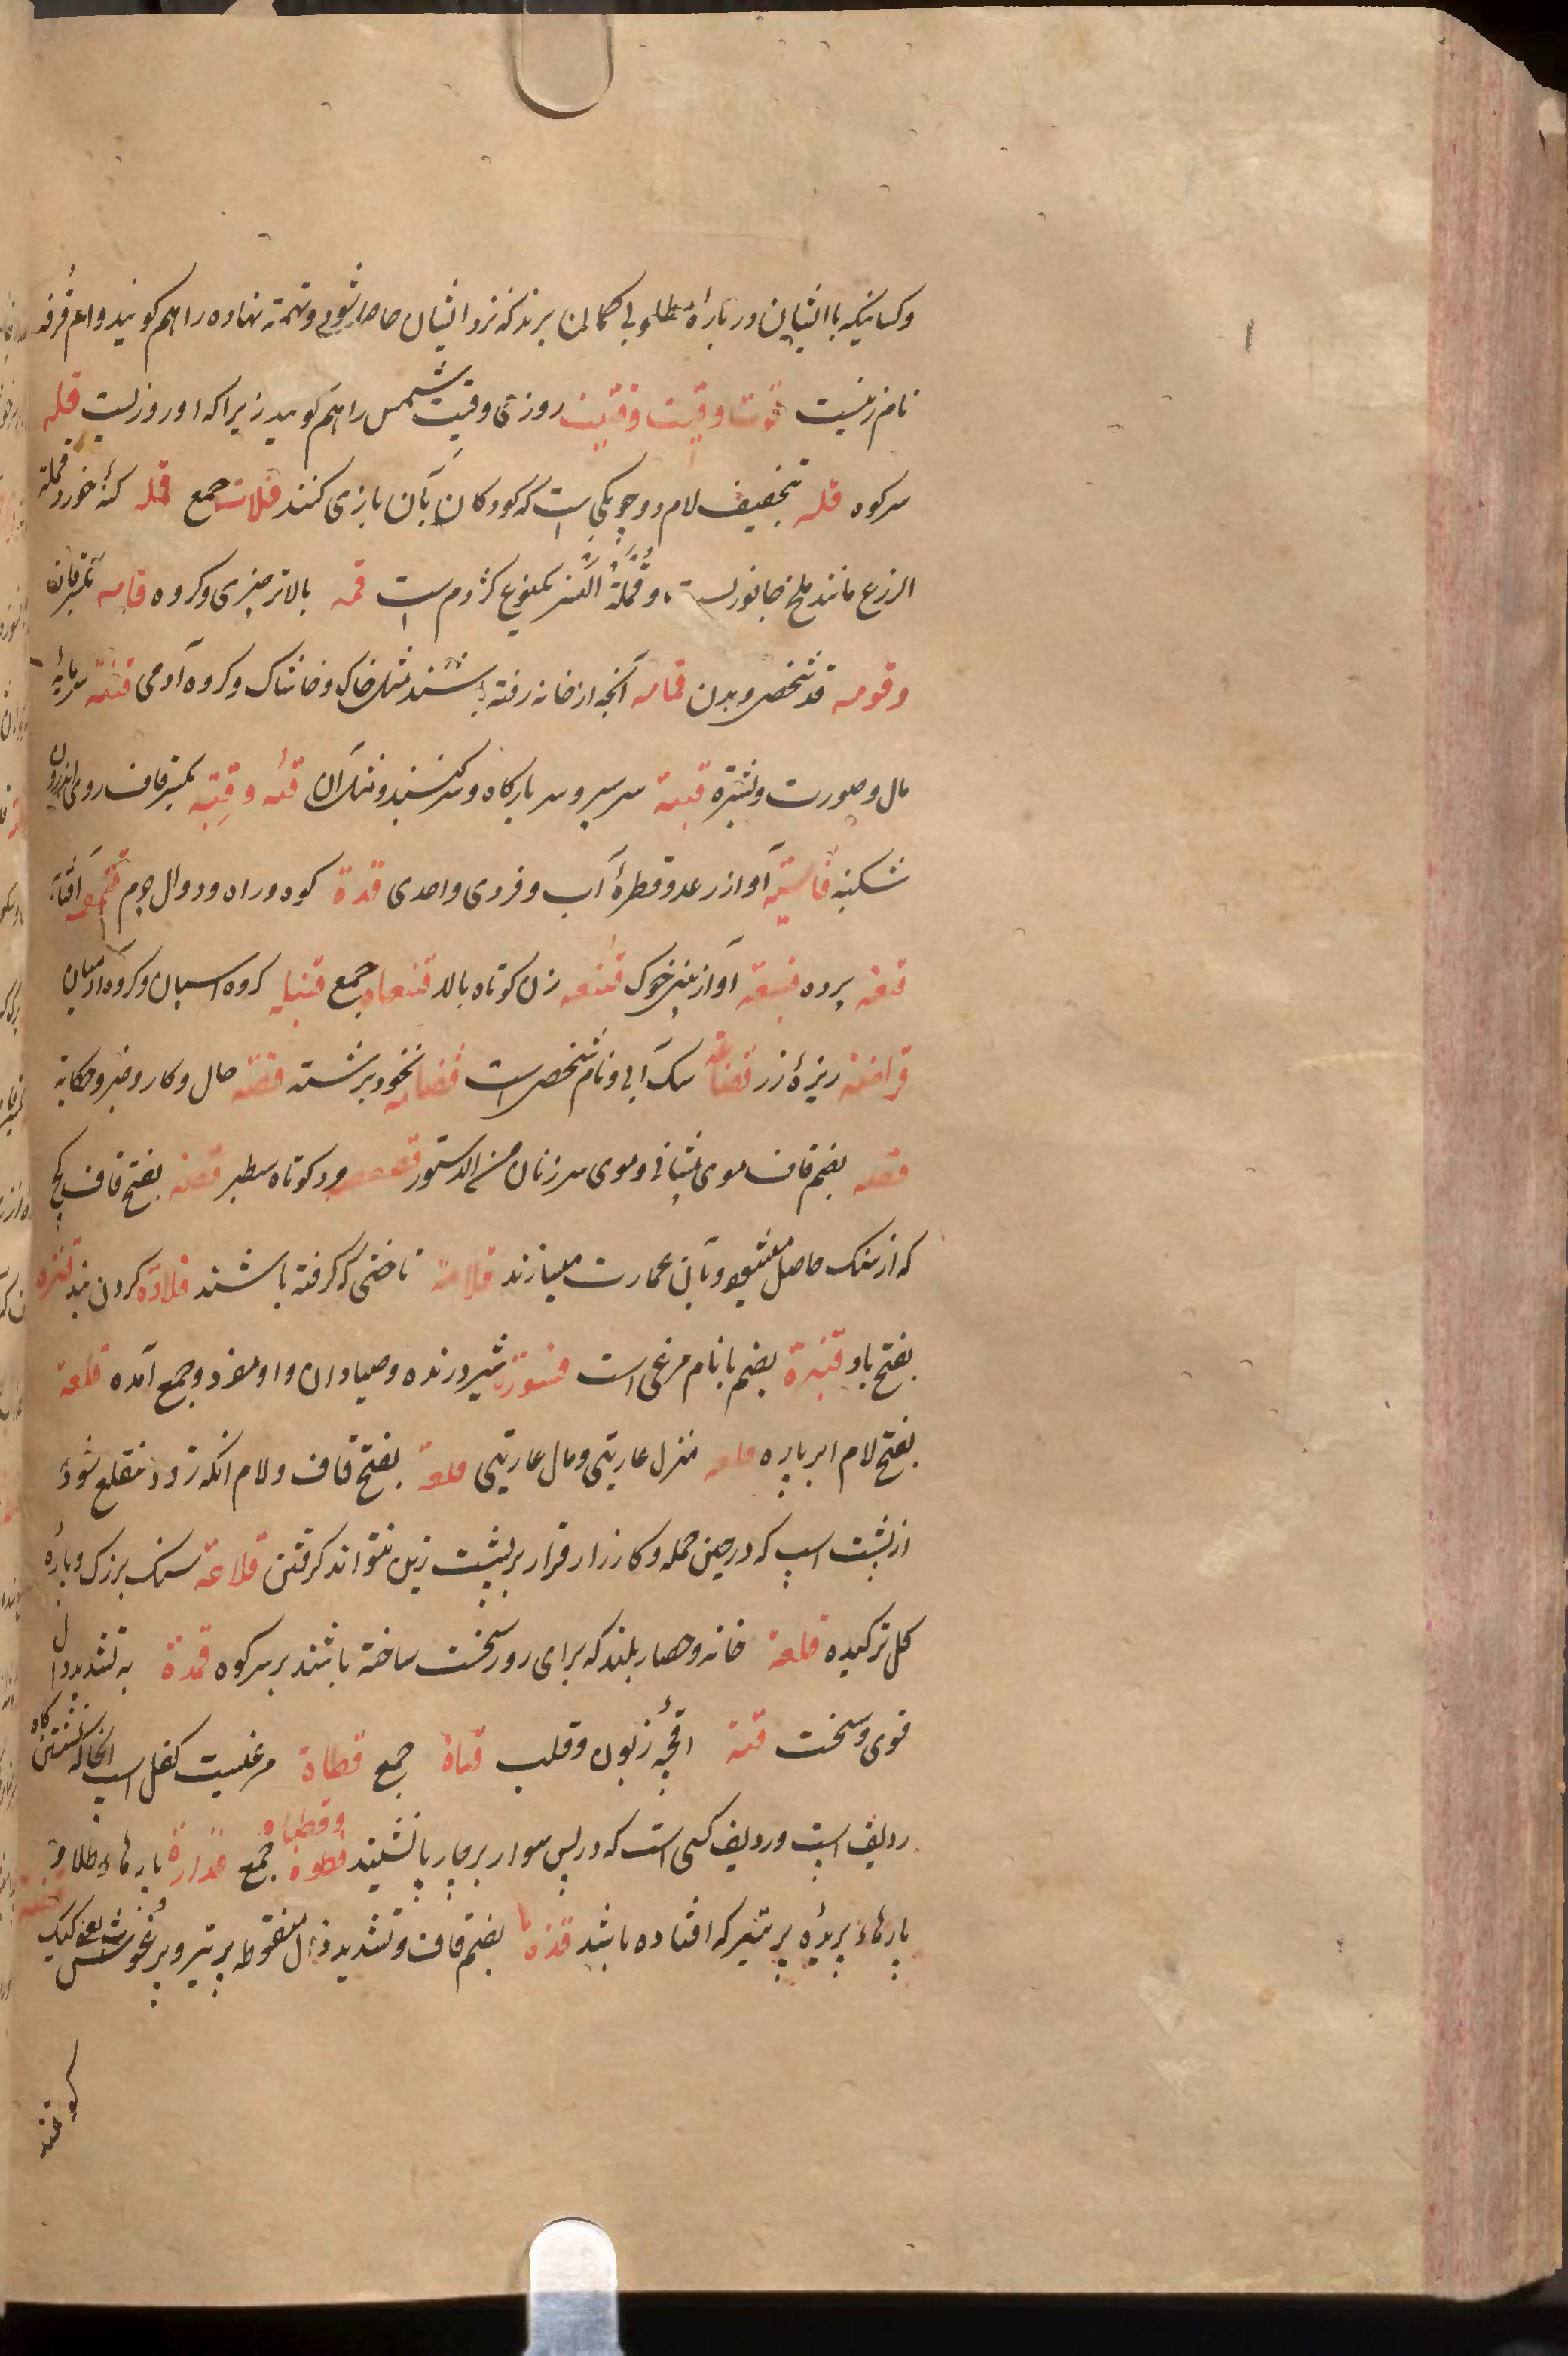 وکسانیکه با ایشان در بارهٔ مطلوبی کمان برند که نزد ایشان حاصل شود و تهمة نهاده را هم کویند و ام قُرفه
نام زنیست قوت و قیت و قیتت روزی وقیت شمس را هم کویند زیرا که او روزیست قله
سر کوه قله بتخفیف لام دو چوبکی است که کودکان بآن بازی کنند قلات جمع قمله کنهٔ خورد و قملة
الزرع مانند ملخ جانوریست و قُمَّلَةُ النسر یکنوع کژدم است قمه بالاتر چیزی و کروه قامه بکسر قاف
و قومه قد شخص و بدن قمامه آنچه از خانه رفته باشند مثل خاک و خاشاک و کروه آدمی قنیه سرمایهٔ
مال و صورت و بشرة قبیه سر سپر و سر بارکاه و سر کنبند و مثل آن قبه و قِتبه بکسر قاف روی اندرون
شکنبه آواز رعد و قطرهٔ آب و فردی واحدی قدة کوه و راه و دوال چرم قمقمه آفتابه
قنعه پرده قبعة آواز بینی خوک قنبعه زن کوتاه بالا قنبعات جمع قنبله کروه اسپان و کروه آدمیان
قراضه ریزهٔ زر قضاعة سک آبی و نام شخص است قضامه نخود برشته قصه حال و کار و خبر و حکایة
قصه بضم قاف موی پیشانی و موی سر زنان من الدستور قصقصه مرد کوتاه سطبر قصه بفتح قاف کچ
که از سنک حاصل میشود و بآن عمارت میسازند قلامة ناخنی که کرفته باشند قلاده کردن بند قنبره
بفتح با و قنبرة بضم با نام مرغی است قسورة شیر درنده و صیادان و او مفرد و جمع آمده قلعة
بفتح لام ابر پاره قلعه منزل عاریتی و مال عاریتی قلعة بفتح قاف و لام آنکه زود منقلع شود
از پشت اسپ که در حین حمله و کارزار قرار بر پشت زین نتواند کرفتن قلاعة سنک بزرک و پارهٔ
کل ترکیده قلعة خانه و حصار بلند که برای روز سخت ساخته باشند بر سر کوه قمدة به تشدید دال
قوی و سخت قتة اقچهٔ زبون و قلب قناة جمع قطاة مرغیست کفل اسپ آنجا که نشستن کاه
ردیف است و ردیف کسی است که در پس سوار بر چارپا نشیند قطوة و قطیات جمع قذاذة پارهاء طلا و قنیه
پارهاء پریدهٔ پر تیر که افتاده باشد قذه بضم قاف و تشدید ذال منقوطه پر تیر و برغوث یعنی کیک
کویند